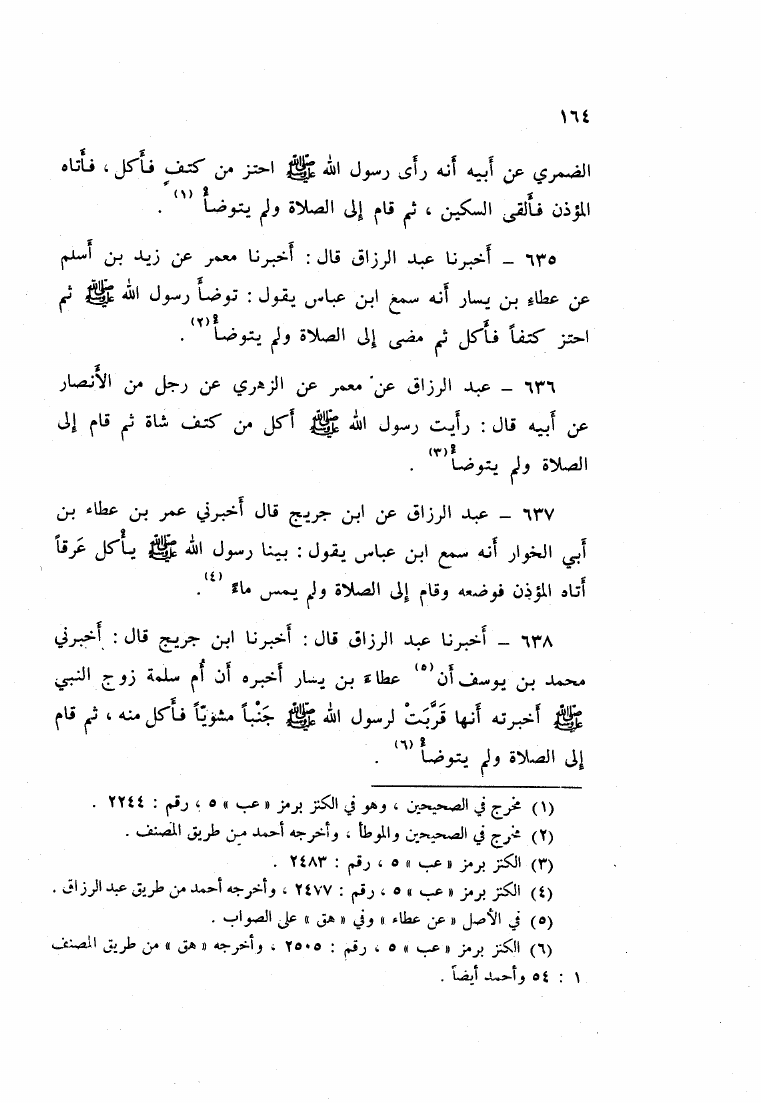 ١٦٤
الضمري عن أبيه أنه رأى رسول الله ﷺ احتز من كتفٍ فأكل ، فأتاه
المؤذن فألقى السكين ، ثم قام إلى الصلاة ولم يتوضأْ (١) .
٦٣٥ – أخبرنا عبد الرزاق قال : أخبرنا معمر عن زيد بن أسلم
عن عطاء بن يسار أنه سمع ابن عباس يقول : توضأ رسول الله ﷺ ثم
احتز كتفاً فأكل ثم مضى إلى الصلاة ولم يتوضأْ (٢) .
٦٣٦ – عبد الرزاق عن معمر عن الزهري عن رجل من الأنصار
عن أبيه قال : رأيت رسول الله ﷺ أكل من كتف شاة ثم قام إلى
الصلاة ولم يتوضأْ (٣) .
٦٣٧ – عبد الرزاق عن ابن جريج قال أخبرني عمر بن عطاء بن
أبي الخوار أنه سمع ابن عباس يقول : بينا رسول الله ﷺ يأكل عَرقاً
أتاه المؤذن فوضعه وقام إلى الصلاة ولم يمس ماءً (٤) .
٦٣٨ – أخبرنا عبد الرزاق قال : أخبرنا ابن جريج قال : أخبرني
محمد بن يوسف أن (٥) عطاءَ بن يسار أخبره أن أُم سلمة زوج النبي
ﷺ أخبرته أنها قَرَّبَتْ لرسول الله ﷺ جَنْباً مشويّاً فأكل منه ، ثم قام
إلى الصلاة ولم يتوضأْ (٦) .
(١) مخرج في الصحيحين ، وهو في الكنز برمز « عب » ٥ ، رقم : ٢٢٤٤ .
(٢) مخرج في الصحيحين والموطأ ، وأخرجه أحمد من طريق المصنف .
(٣) الكنز برمز « عب » ٥ ، رقم : ٢٤٨٣ .
(٤) الكنز برمز « عب » ٥ ، رقم : ٢٤٧٧ ، وأخرجه أحمد من طريق عبد الرزاق .
(٥) في الأصل « عن عطاء » وفي « هق » على الصواب .
(٦) الكنز برمز « عب » ٥ ، رقم : ٢٥٠٥ ، وأخرجه « هق » من طريق المصنف
١ : ٥٤ وأحمد أيضاً .